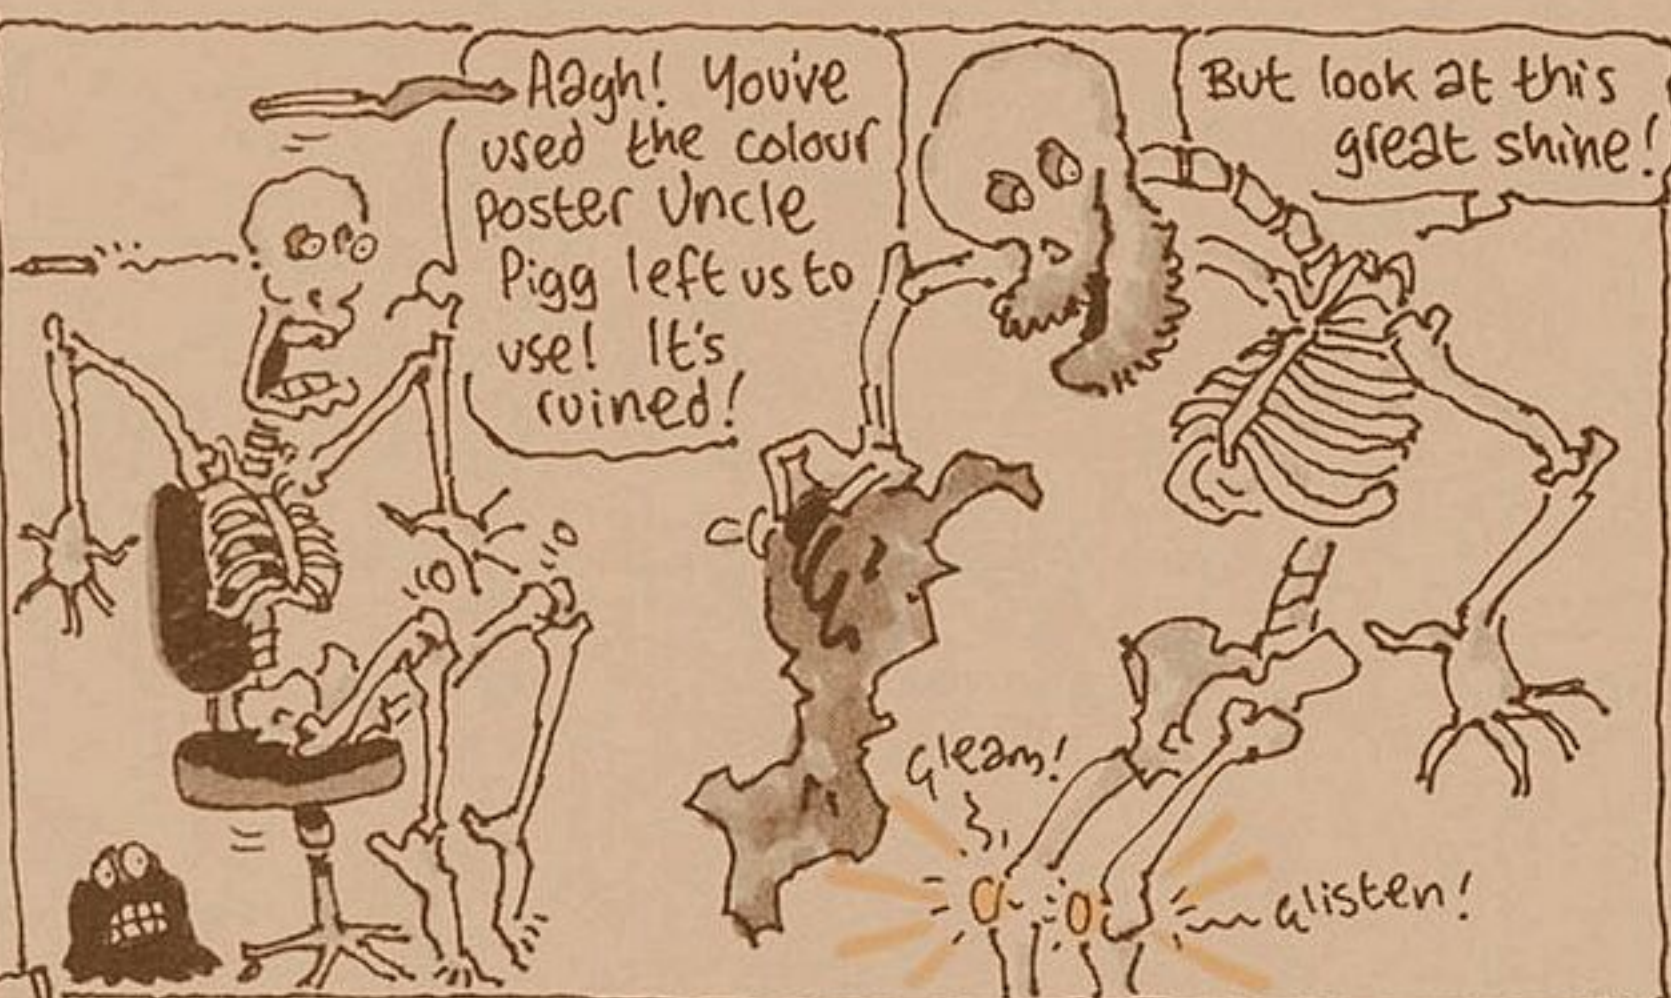 Aagh! You've
used the colour
poster Uncle
Pigg left us to
use! It's
ruined!
But look at this
great shine!
Gleam!
Glisten!